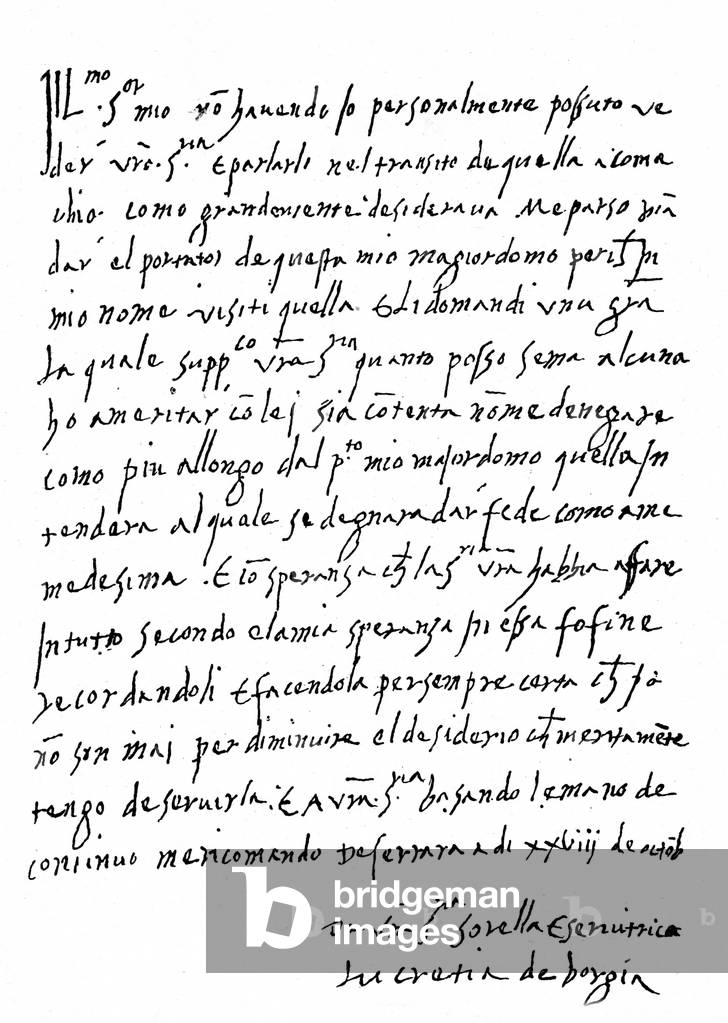 Ill.mo S.or mio nō havendo Io personalmente possuto ve
der' vrā S.ria E parlarli nel transito de quella a Coma
chio. Como grandemente desiderava Me parso mā
dar' el portator de questa mio magiordomo per
mio nome visiti quella E Li domandi una grā
La quale supp.co vrā S.ria quanto posso sensa alcuna
ho a meritar cō lei sia cōtenta nō me denegare
como piu allongo dal p.to mio majordomo quella In
tendera al quale se degnara dar' fede como a me
medesima . E cō speransa ch la S.ria vrā habbia affare
In tutto secondo e la mia speransa In essa fo fine
recordandoli E facendola per sempre certa ch
nō son mai per diminuire el desiderio ch meritamēte
tengo de servirla. E A vrā S.ria basando le mano de
continuo me ricomando De ferrara a di xxviij de octōb
vrā S.ria sorella E servitrice
Lucretia de borgia
bridgeman
images
b